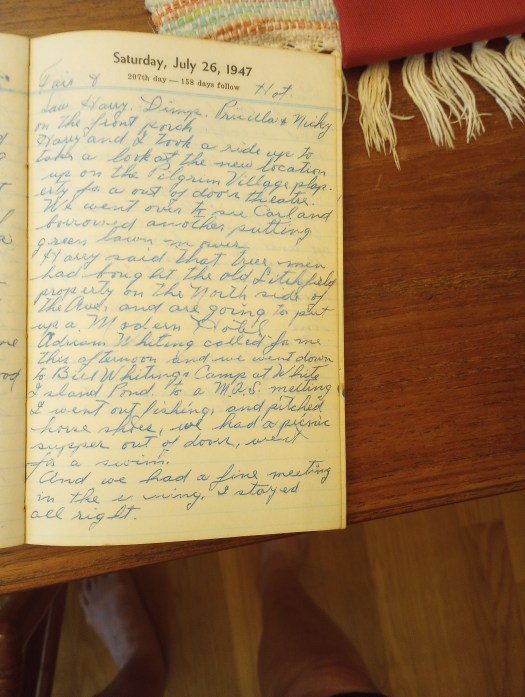 Saturday, July 26, 1947
207th day — 158 days follow
Fair & Hot
Saw Harry. Dimp. Pricilla & Nicky
on the front porch
Harry and I took a ride up to
take a look at the new location
up on the Pilgrim Village prop-
erty for a out of door theatre.
We went over to see Carl and
borrowed another putting
green lawn mower
Harry said that three men
had bought the old Litchfield
property on the North side of
the Ave, and are going to put
up a Modern Hotel
Adrian Whiting called for me
this afternoon and we went down
to Bill Whitings Camp at White
Island Pond. to a M.R.S. meeting
I went out fishing, and pitched
horse shoes, we had a picnic
supper out of door, went
for a swim.
And we had a fine meeting
in the e wning. I stayed
all right.